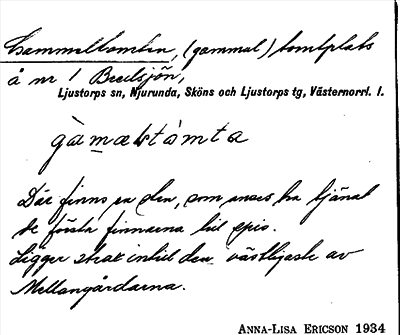 Gammeltomten, (gammal) tomtplats
å nr 1 Beelsjön,
Ljustorps sn, Njurunda, Sköns och Ljustorps tg, Västernorrl. l.
gàmæltómta
Där finns en den, som anses ha tjänat
de första finnarna till spis.
Ligger strax intill den västligaste av
Mellangårdarna.
ANNA-LISA ERICSON 1934